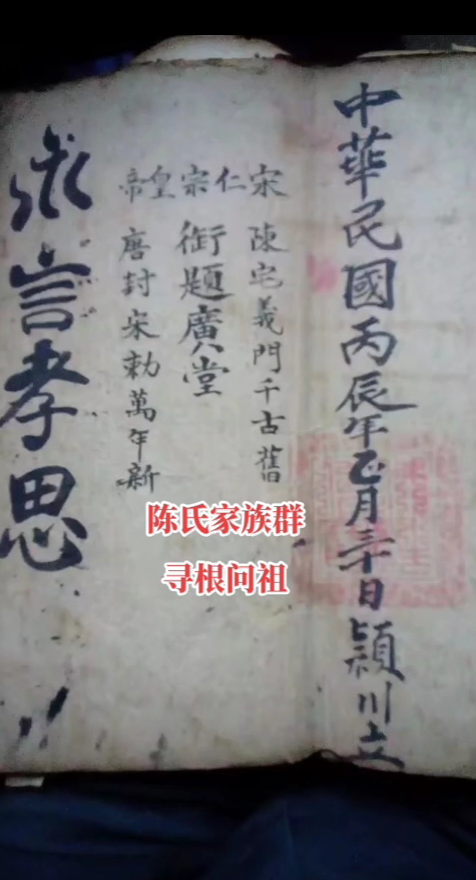 中華民國丙辰年正月三十日穎川立
宋仁宗皇帝
陳宅義門千古舊
銜題廣堂
唐封宋勅萬年新
永言孝思
陈氏家族群
寻根问祖